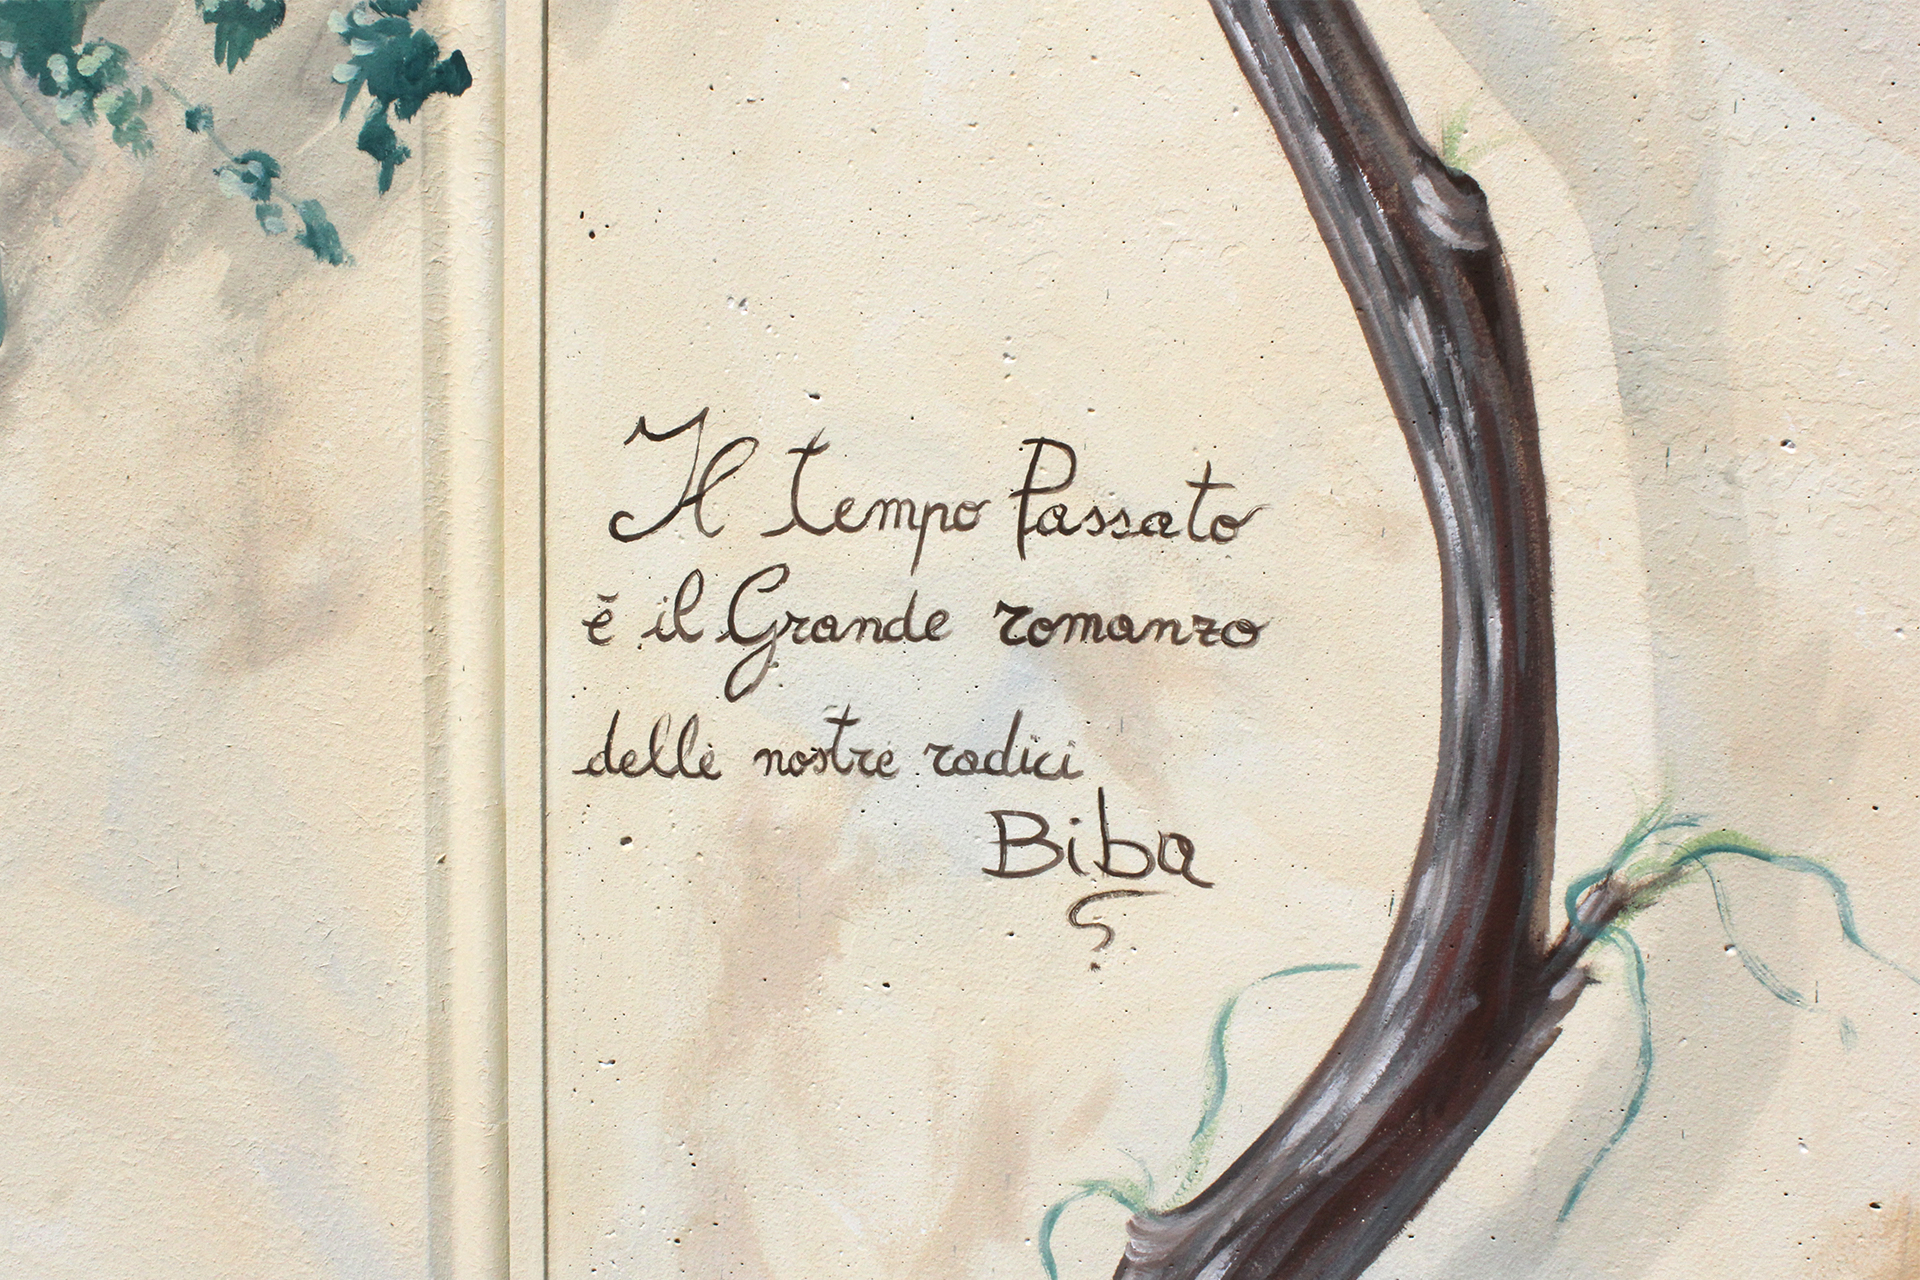 Il tempo Passato
è il Grande romanzo
delle nostre radici
Biba